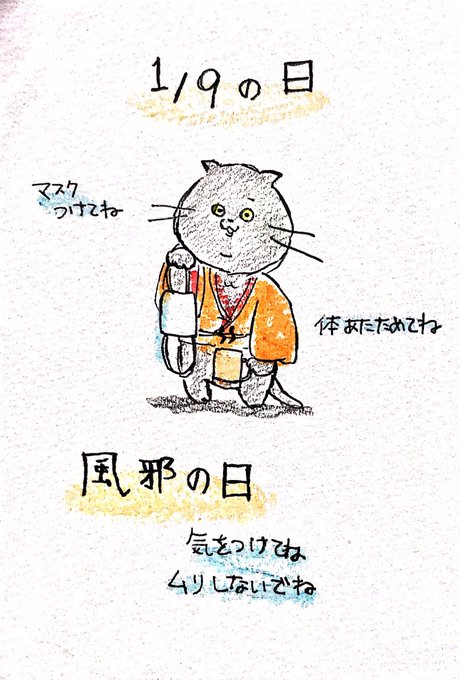 1/9の日
マスク
つけてね
体あたためてね
風邪の日
気をつけてね
ムリしないでね